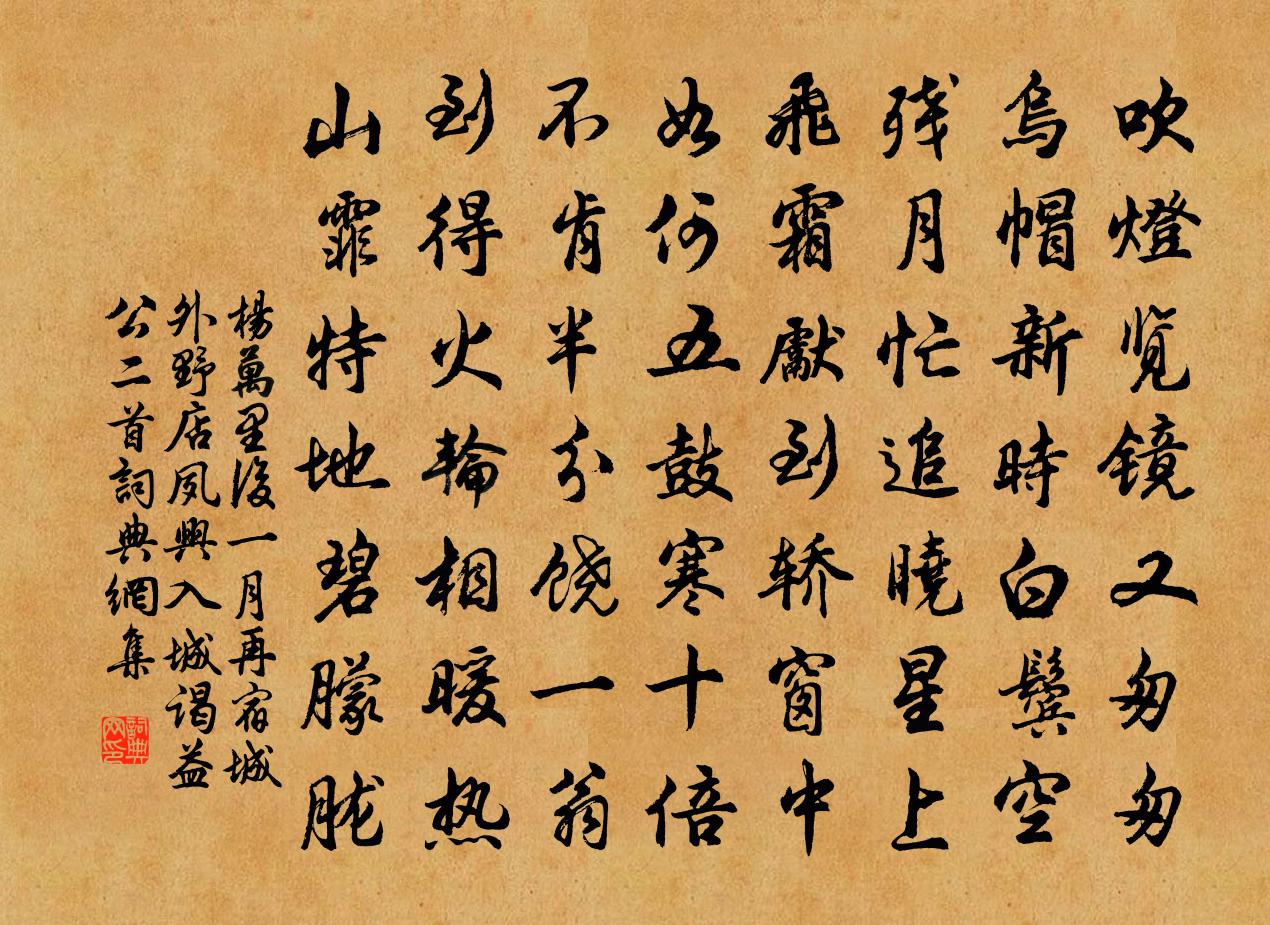 吹燈览镜又匆匆
烏帽新時白鬓空
残月忙追曉星上
飛霜獻到轿窗中
如何五鼓寒十倍
不肯半分饶一翁
到得火輪相暖热
山霏特地碧朦胧
楊萬里後一月再宿城
外野店夙興入城谒益
公二首詞典網集
詞典
网印